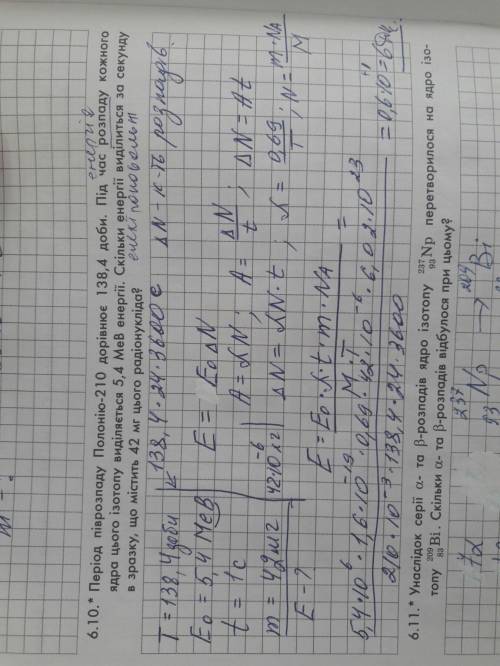 6.10.* Період піврозпаду Полонію-210 дорівнює 138,4 доби. Під час розпаду кожного
ядра цього ізотопу виділяється 5,4 МеВ енергії. Скільки енергії виділиться за секунду
в зразку, що містить 42 мг цього радіонукліда?
енергія
електроновольт
T = 138,4 доби | 138,4·24·3600 с ΔN – к-ть розпадів
E₀ = 5,4 МеВ
E = E₀ΔN
t = 1 с
A = λN; A = ΔN/t; ΔN = At
m = 42 мг | 42·10⁻⁶ кг
ΔN = λN·t; λ = 0,69/T; N = m·NA/M
E - ?
E = E₀·λ·t·m·NA / M·T =
5,4·10⁶·1,6·10⁻¹⁹·0,69·42·10⁻⁶·6,02·10²³
210·10⁻³·138,4·24·3600
= 0,6·10⁺¹ = 6 Дж.
6.11.* Унаслідок серії α- та β-розпадів ядро ізотопу ²³⁷₉₃Np перетворилося на ядро ізо-
топу ²⁰⁹₈₃Bi. Скільки α- та β-розпадів відбулося при цьому?
²³⁷₉₃Np → ²⁰⁹Bi
7α